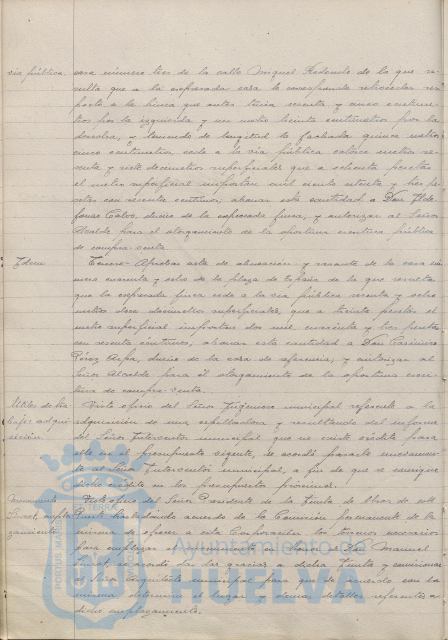 via pública casa número tres de la calle Miguel Redondo de la que re-
sulta que a la expresada casa le corresponde retroceder res-
pecto a la línea que antes tenía sesenta y cinco centíme-
tros por la izquierda y un metro treinta centímetros por la
derecha, y teniendo de longitud la fachada quince metros
cinco centímetros cede a la via pública catorce metros se-
senta y siete decímetros superficiales que a ochenta pesetas
el metro superficial importan mil ciento setenta y tres pe-
setas con sesenta céntimos; abonar esta cantidad a Don Ilde-
fonso Calvo, dueño de la expresada finca, y autorizar al Señor
Alcalde para el otorgamiento de la oportuna escritura pública
de compra-venta.
Idem Tercero: Aprobar acta de alineación y rasante de la casa nú-
mero cuarenta y ocho de la plaza de España de la que resulta
que la expresada finca cede a la via pública sesenta y ocho
metros doce decímetros superficiales, que a treinta pesetas el
metro superficial importan dos mil cuarenta y tres pesetas
con sesenta céntimos; abonar esta cantidad a Don Casimiro
Pérez Arpa, dueño de la casa de referencia, y autorizar al
Señor Alcalde para el otorgamiento de la oportuna escri-
tura de compra-venta.
Visto oficio del Señor Ingeniero municipal referente a la
adquisición de una y resultando del informe
del Señor Interventor municipal que no existe crédito para
ello en el presupuesto vigente, se acordó pasarlo nuevamen-
te al Señor Interventor municipal, a fin de que se consigne
dicho crédito en los presupuestos próximos.
Monumento Visto oficio del Señor Presidente de la Junta de Obras de este
Puerto trasladando acuerdo de la Comisión permanente de la
misma de ofrecer a esta Corporación los terrenos necesarios
para emplazar el monumento a Don José Manuel
se acordó dar las gracias a dicha Junta y comisionar
al Señor Arquitecto municipal para que de acuerdo con la
misma determine el lugar y demás detalles referentes a
dicho emplazamiento.
Ayuntamiento de
HUELVA
PORTUS MARIS
TERRÆ